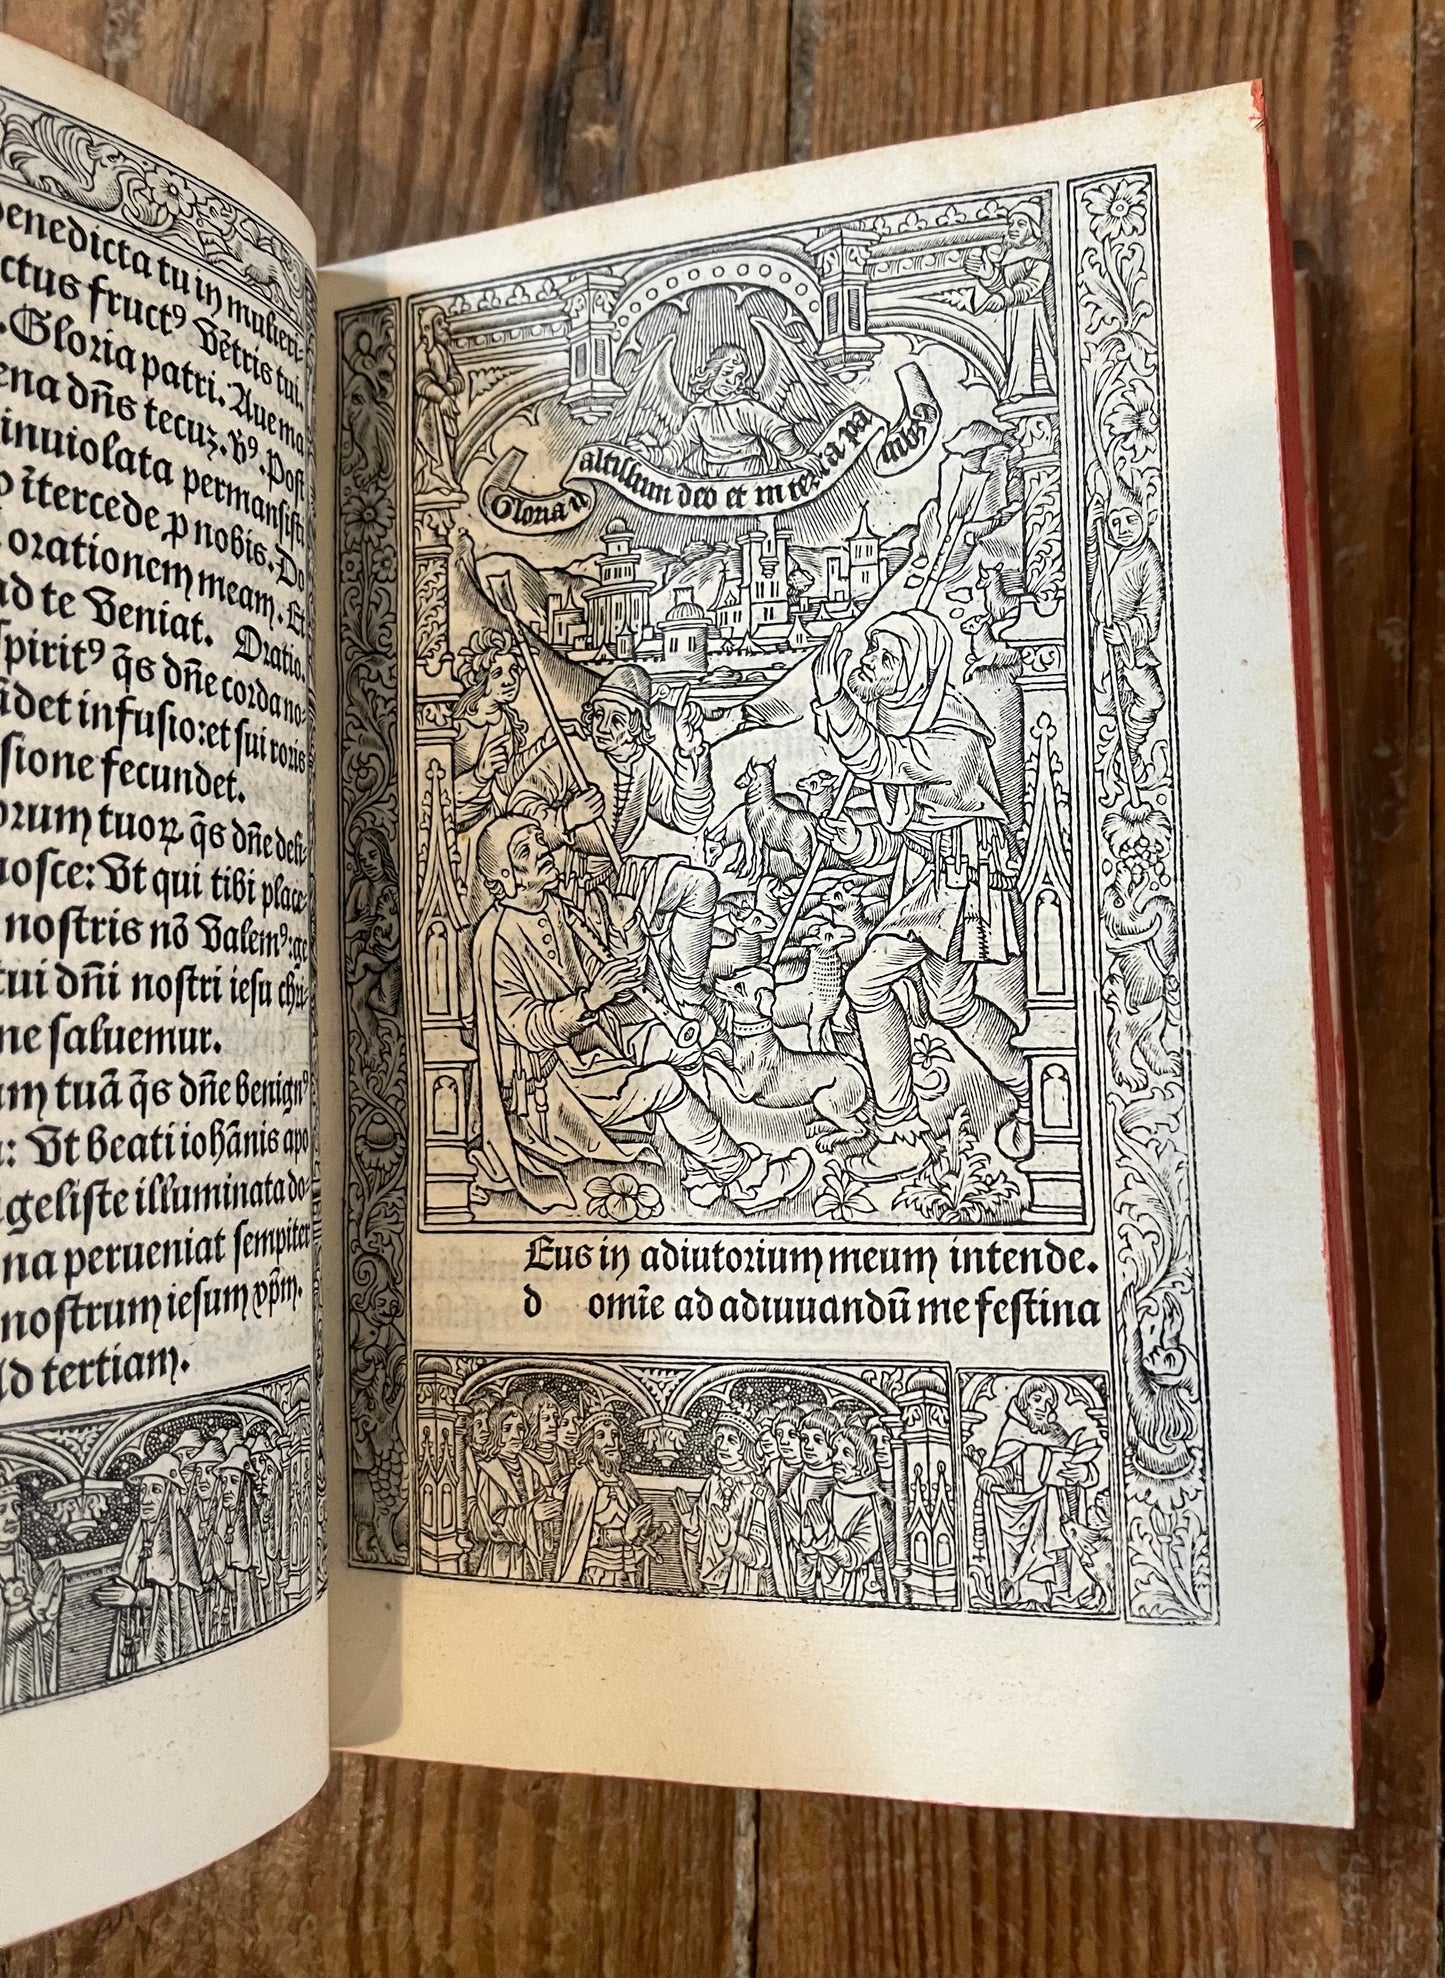 benedicta tu in mulieri-
ctus fructꝰ Vētris tui.
. Gloria patri. Aue ma
ena dn̄s tecuꝫ. v̄ꝰ. Post
inuiolata permansisti.
ītercede ꝓ nobis. Do
orationem meam. Et
ad te Veniat. Oratio.
spiritꝰ q̄s dn̄e corda no-
det infusio: et sui roris
sione fecundet.
orum tuoꝝ q̄s dn̄e deli-
nosce: Vt qui tibi place
nostris nō Valemꝰ: ge
tui dn̄i nostri iesu chri
ne saluemur.
am tuā q̄s dn̄e benignꝰ
: Vt beati iohānis apo
geliste illuminata do-
na perueniat sempiter
nostrum iesum xp̄m.
Ad tertiam.
Gloria in altissimis deo et in terra pa
Eus in adiutorium meum intende.
d omīe ad adiuuandū me festina